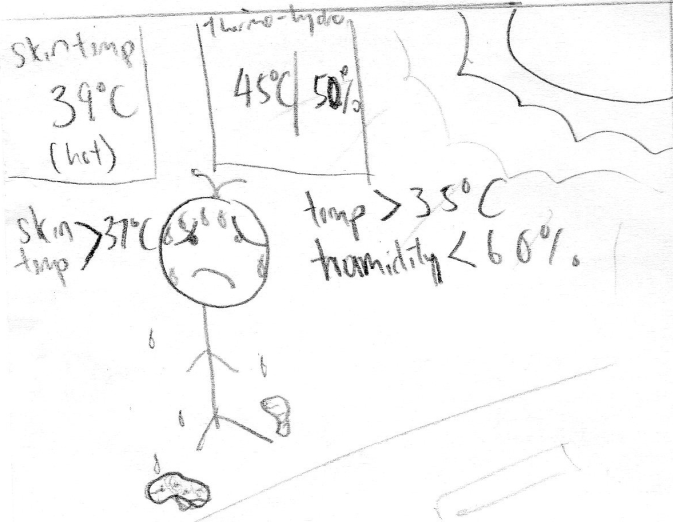 skin timp
39°C
(hot)
thermo-hydro
45°C 50%
skin
timp >37°C
timp > 35°C
humidity < 60%